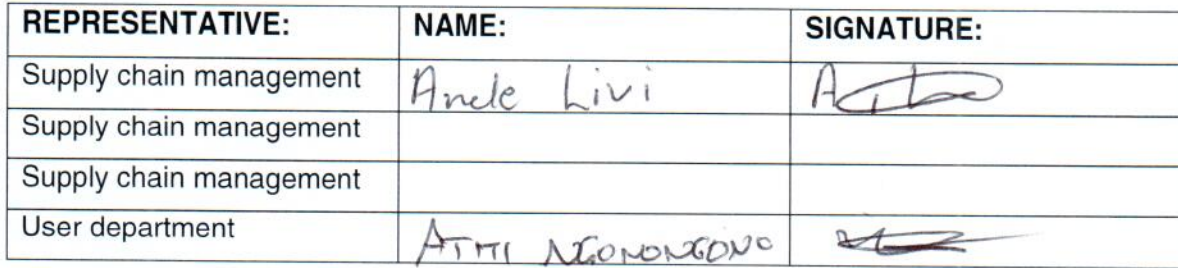 REPRESENTATIVE: NAME: SIGNATURE:
Supply chain management Ancle Livi
Supply chain management
Supply chain management
User department